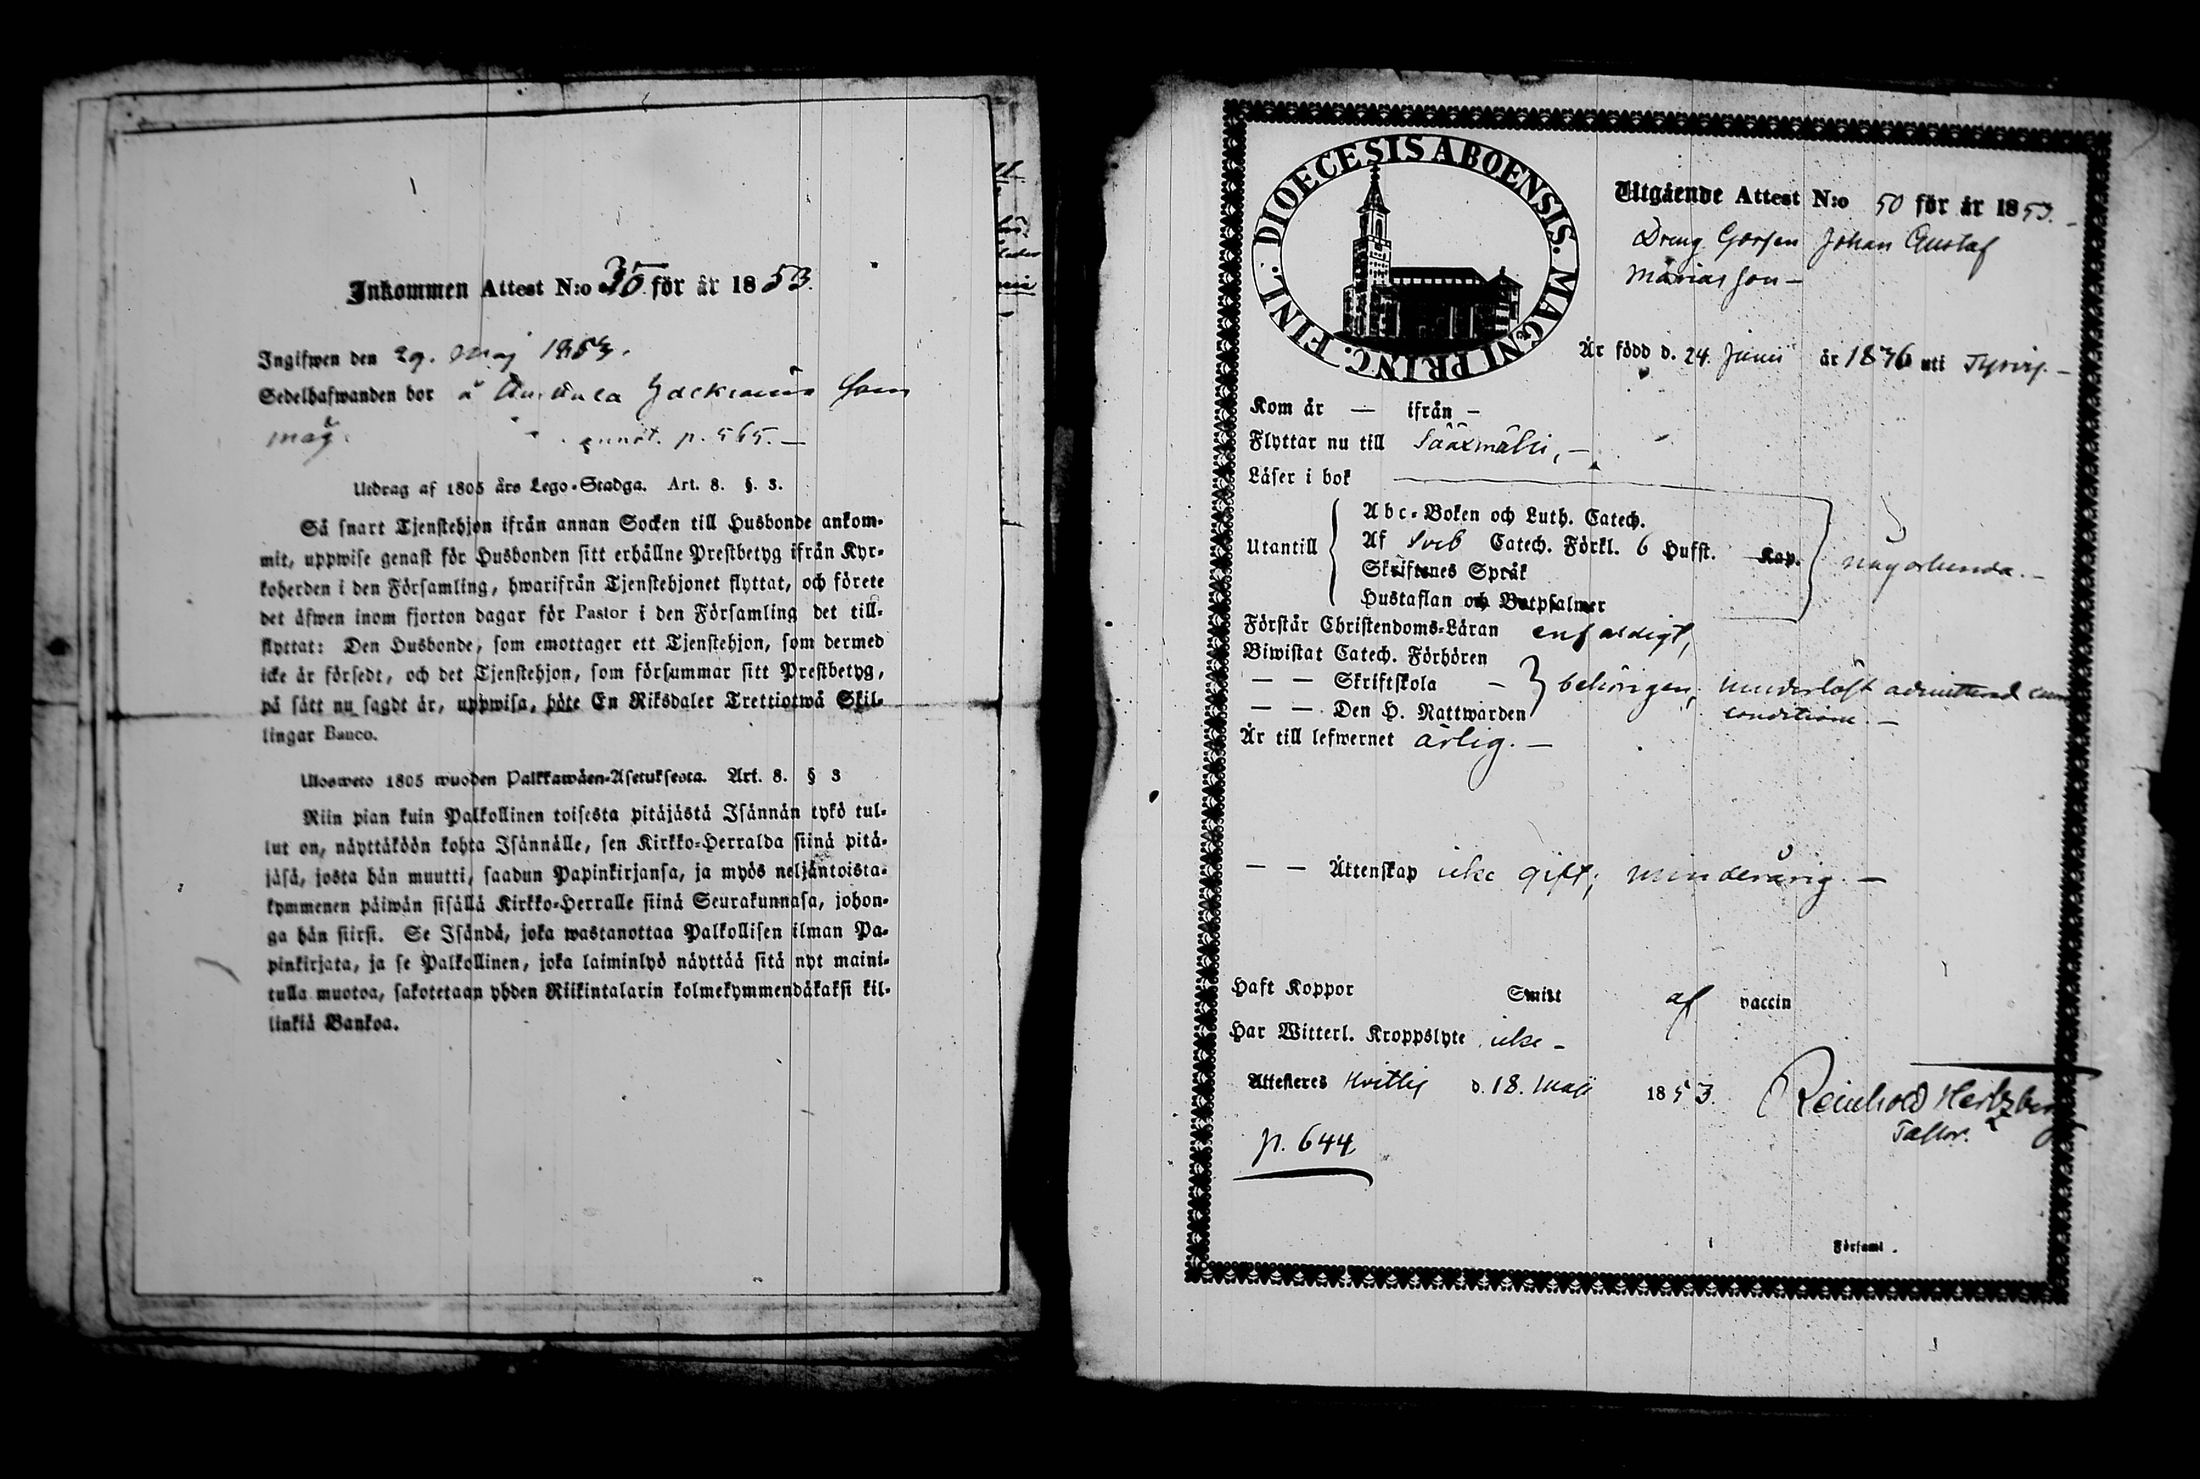 Inkommen Attest N:o 35 för år 1853.
Ingifwen den 29. Maj 1853.
Sedelhafwanden bor å Jackimus som
måg. p. 565. —
Utdrag af 1805 års Lego-Stadga. Art. 8. §. 3.
Så snart Tjenstehjon ifrån annan Socken till Husbonde ankom-
mit, uppwise genast för Husbonden sitt erhållne Prestbetyg ifrån Kyr-
koherden i den Församling, hwarifrån Tjenstehjonet flyttat, och förete
det äfwen inom fjorton dagar för Pastor i den Församling det till-
flyttat: Den Husbonde, som emottager ett Tjenstehjon, som dermed
icke är försedt, och det Tjenstehjon, som försummar sitt Prestbetyg,
på sätt nu sagdt är, uppwisa, böte En Riksdaler Trettiotwå Skil-
lingar Banco.
Ulosweto 1805 wuoden Palkkawäen-Asetuksesta. Art. 8. § 3
Niin pian kuin Palkollinen toisesta pitäjästä Isännän tykö tul-
lut on, näyttäköön kohta Isännälle, sen Kirkko-Herralda siinä pitä-
jäsä, josta hän muutti, saadun Papinkirjansa, ja myös neljäntoista-
kymmenen päiwän sisällä Kirkko-Herralle siinä Seurakunnasa, johon-
ga hän siirsi. Se Isändä, joka wastanottaa Palkollisen ilman Pa-
pinkirjata, ja se Palkollinen, joka laiminlyö näyttää sitä nyt maini-
tulla muotoa, sakotetaan yhden Riikintalarin kolmekymmendäkaksi kil-
linkiä Bankoa.
DIOECESIS ABOENSIS. MAGNI PRINC. FINL.
Utgående Attest N:o 50 för år 1853.
Dreng Gossen Johan Gustaf
Mariasson —
Är född d. 24. Junii år 1836 uti Tyrvis. —
Kom år — ifrån —
Flyttar nu till Sääxmäki, —
Läser i bok
Utantill
Abc-Boken och Luth. Catech.
Af Sveb Catech. Förkl. 6 Hufst. Kap.
Skriftenes Språk
Hustaflan och Botpsalmer
någorlunda. —
Förstår Christendoms-Läran enfaldigt,
Biwistat Catech. Förhören
— — Skriftskola —
— — Den H. Nattwarden
behörigen, admitterad cum
conditione. —
Är till lefwernet ärlig. —
— — Ättenskap icke gift, minderårig. —
Haft Koppor Smitt af vaccin
Har Witterl. Kroppslyte icke —
Attesteres Hvittis d. 18. Maji 1853.
Reinhold Hertzberg
Pastor.
p. 644
Församl.